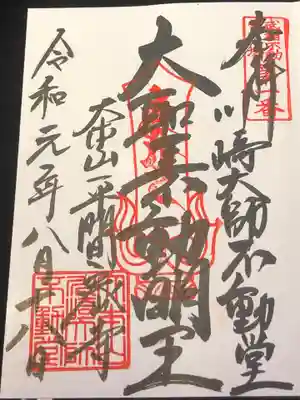 奉拝 川崎大師不動堂
大聖不動明王
大本山平間寺
令和元年八月廿八日